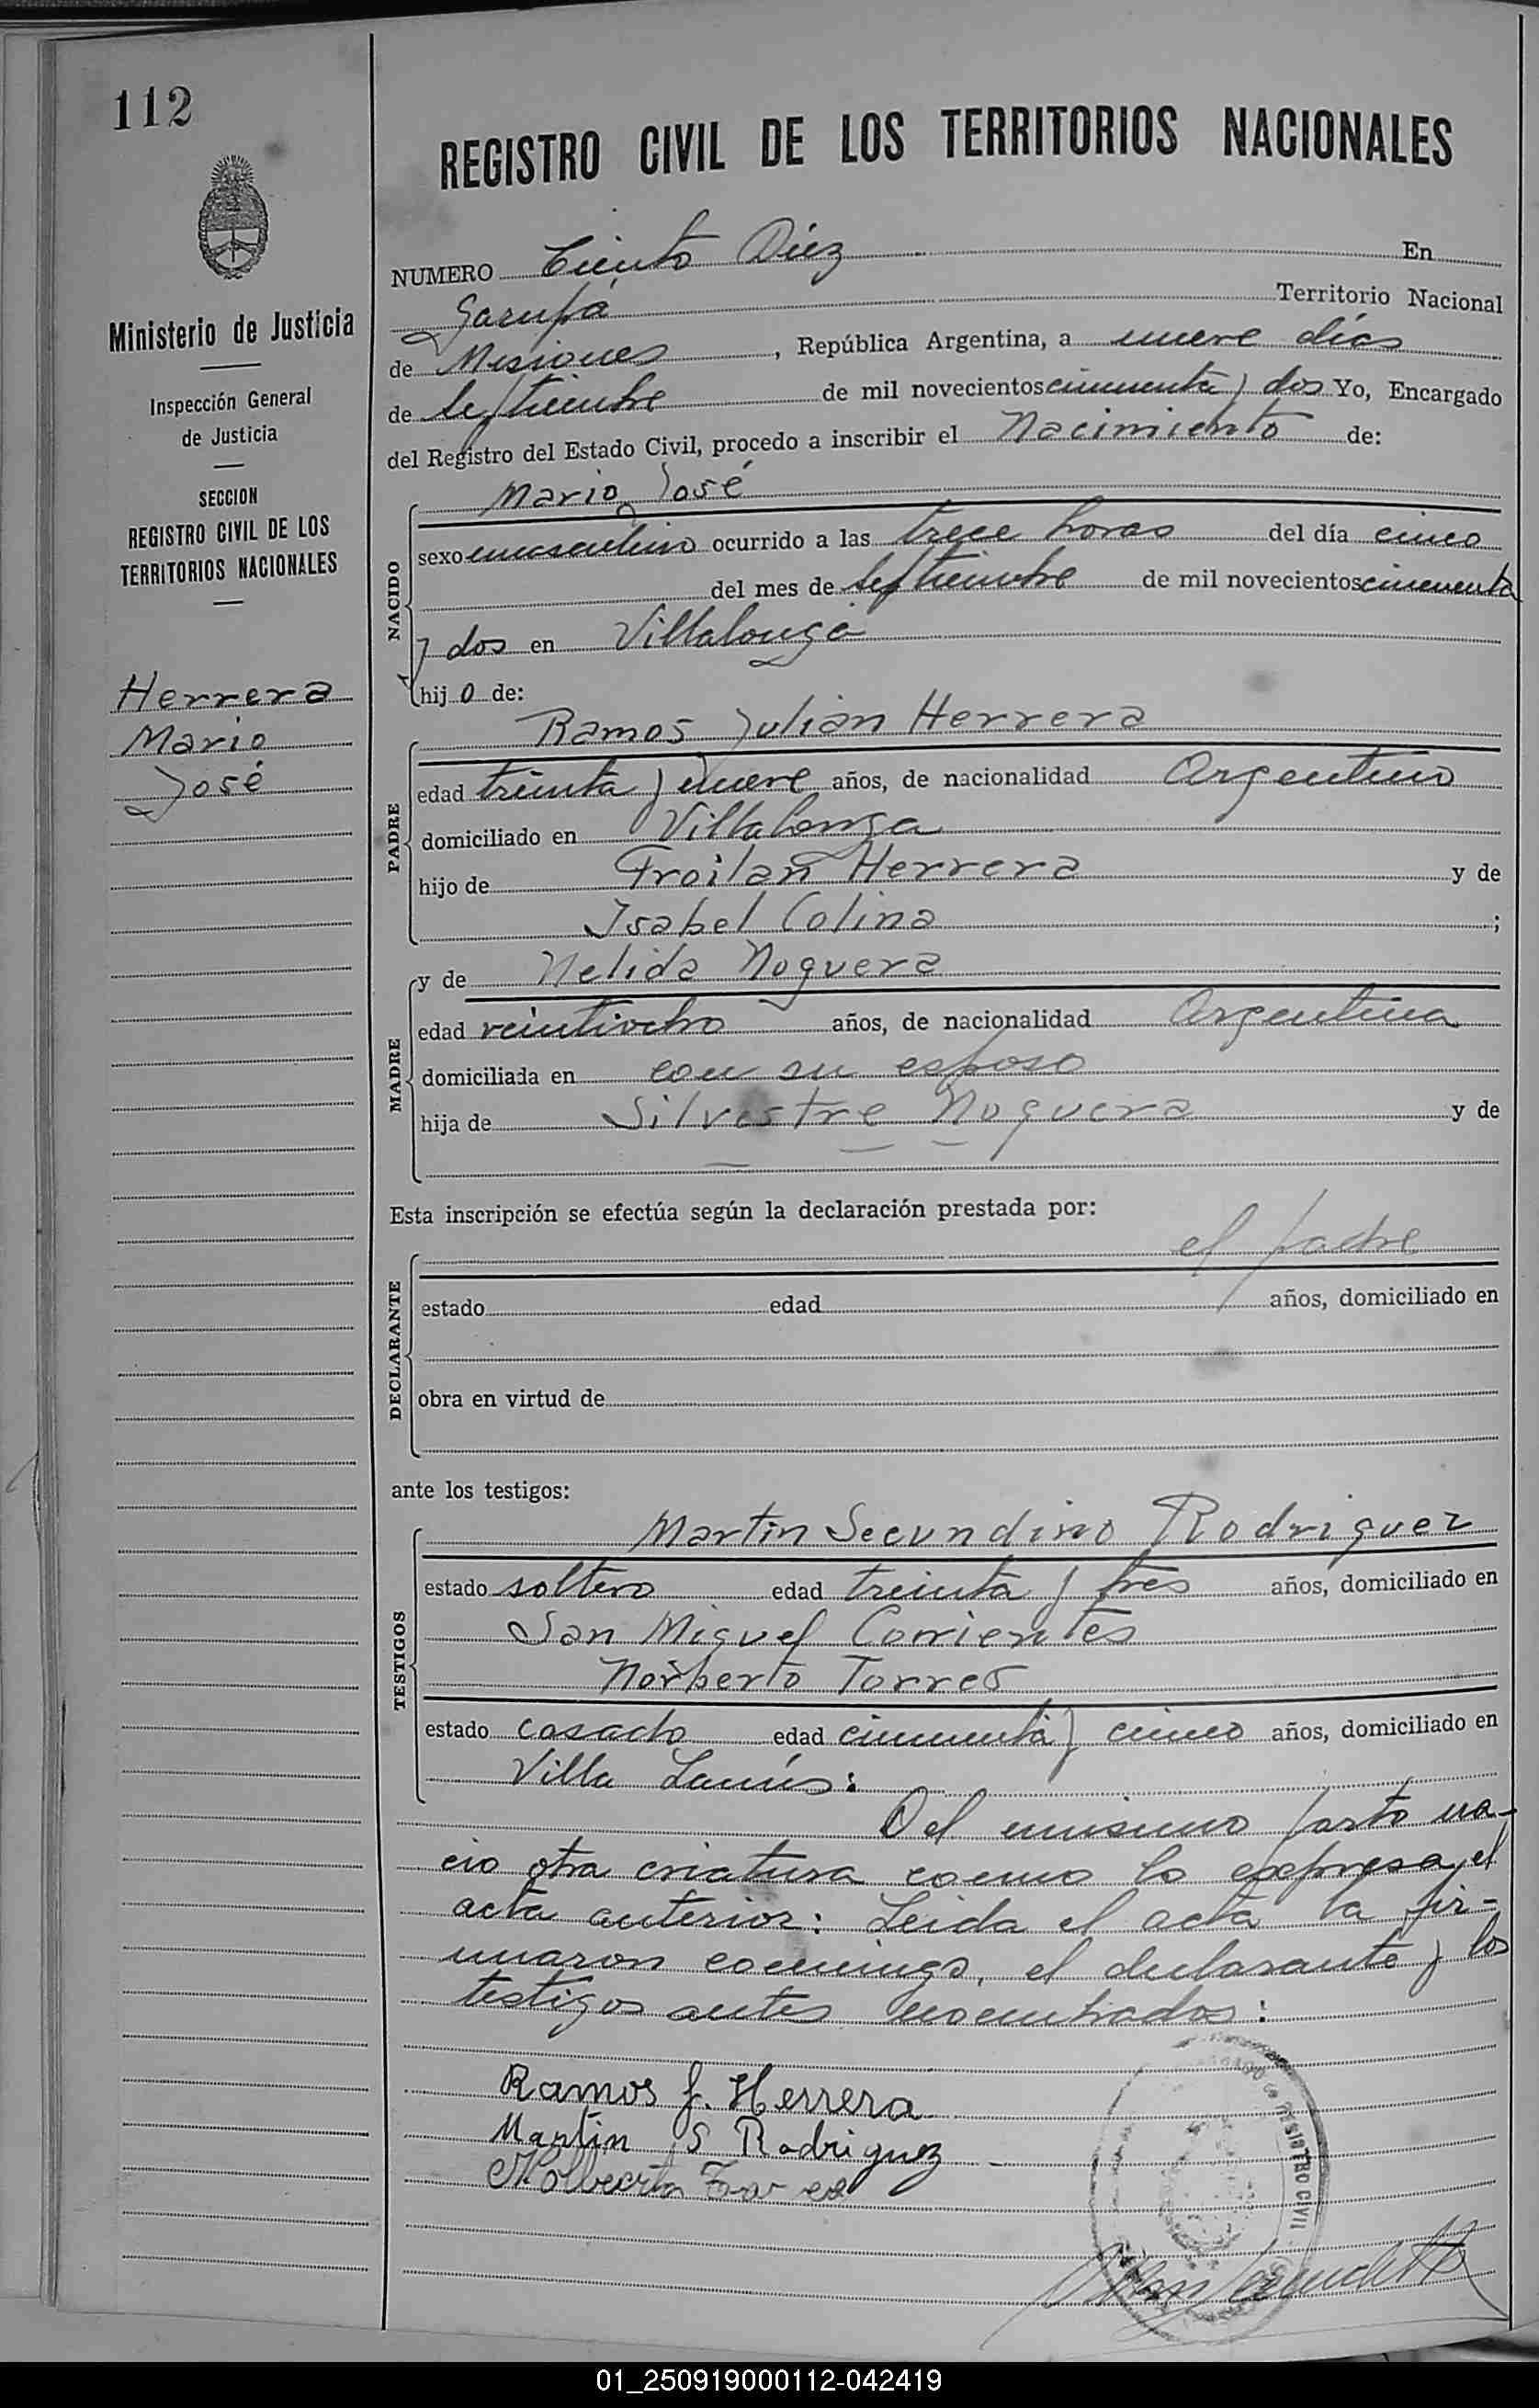 112
REGISTRO CIVIL DE LOS TERRITORIOS NACIONALES
Ministerio de Justicia
Inspección General
de Justicia
SECCION
REGISTRO CIVIL DE LOS
TERRITORIOS NACIONALES
Herrera
Mario
José
NUMERO Ciento Diez En
Garupá Territorio Nacional
de Misiones, República Argentina, a nueve días
de Septiembre de mil novecientos cincuenta y dos Yo, Encargado
del Registro del Estado Civil, procedo a inscribir el Nacimiento de:
NACIDO
Mario José
sexo masculino ocurrido a las trece horas del día cinco
del mes de Septiembre de mil novecientos cincuenta
y dos en Villalonga
hijo de:
PADRE
Ramos Julián Herrera
edad treinta y nueve años, de nacionalidad Argentino
domiciliado en Villalonga
hijo de Froilan Herrera y de
Isabel Colina ;
MADRE
y de Nelida Noguera
edad veintiocho años, de nacionalidad Argentina
domiciliada en con su esposo
hija de Silvestre Noguera y de
Esta inscripción se efectúa según la declaración prestada por:
DECLARANTE
el padre
estado edad años, domiciliado en
obra en virtud de
ante los testigos:
TESTIGOS
Martin Secundino Rodriguez
estado soltero edad treinta y tres años, domiciliado en
San Miguel Corrientes
Norberto Torres
estado casado edad cincuenta y cinco años, domiciliado en
Villa Lanús:
Del mismo parto na-
cio otra criatura como lo expresa el
acta anterior: Leida el acta la fir-
maron conmigo, el declarante y los
testigos antes nombrados:
Ramos J. Herrera
Martin S Rodriguez
Nolberto Torres
REGISTRO CIVIL
01_250919000112-042419